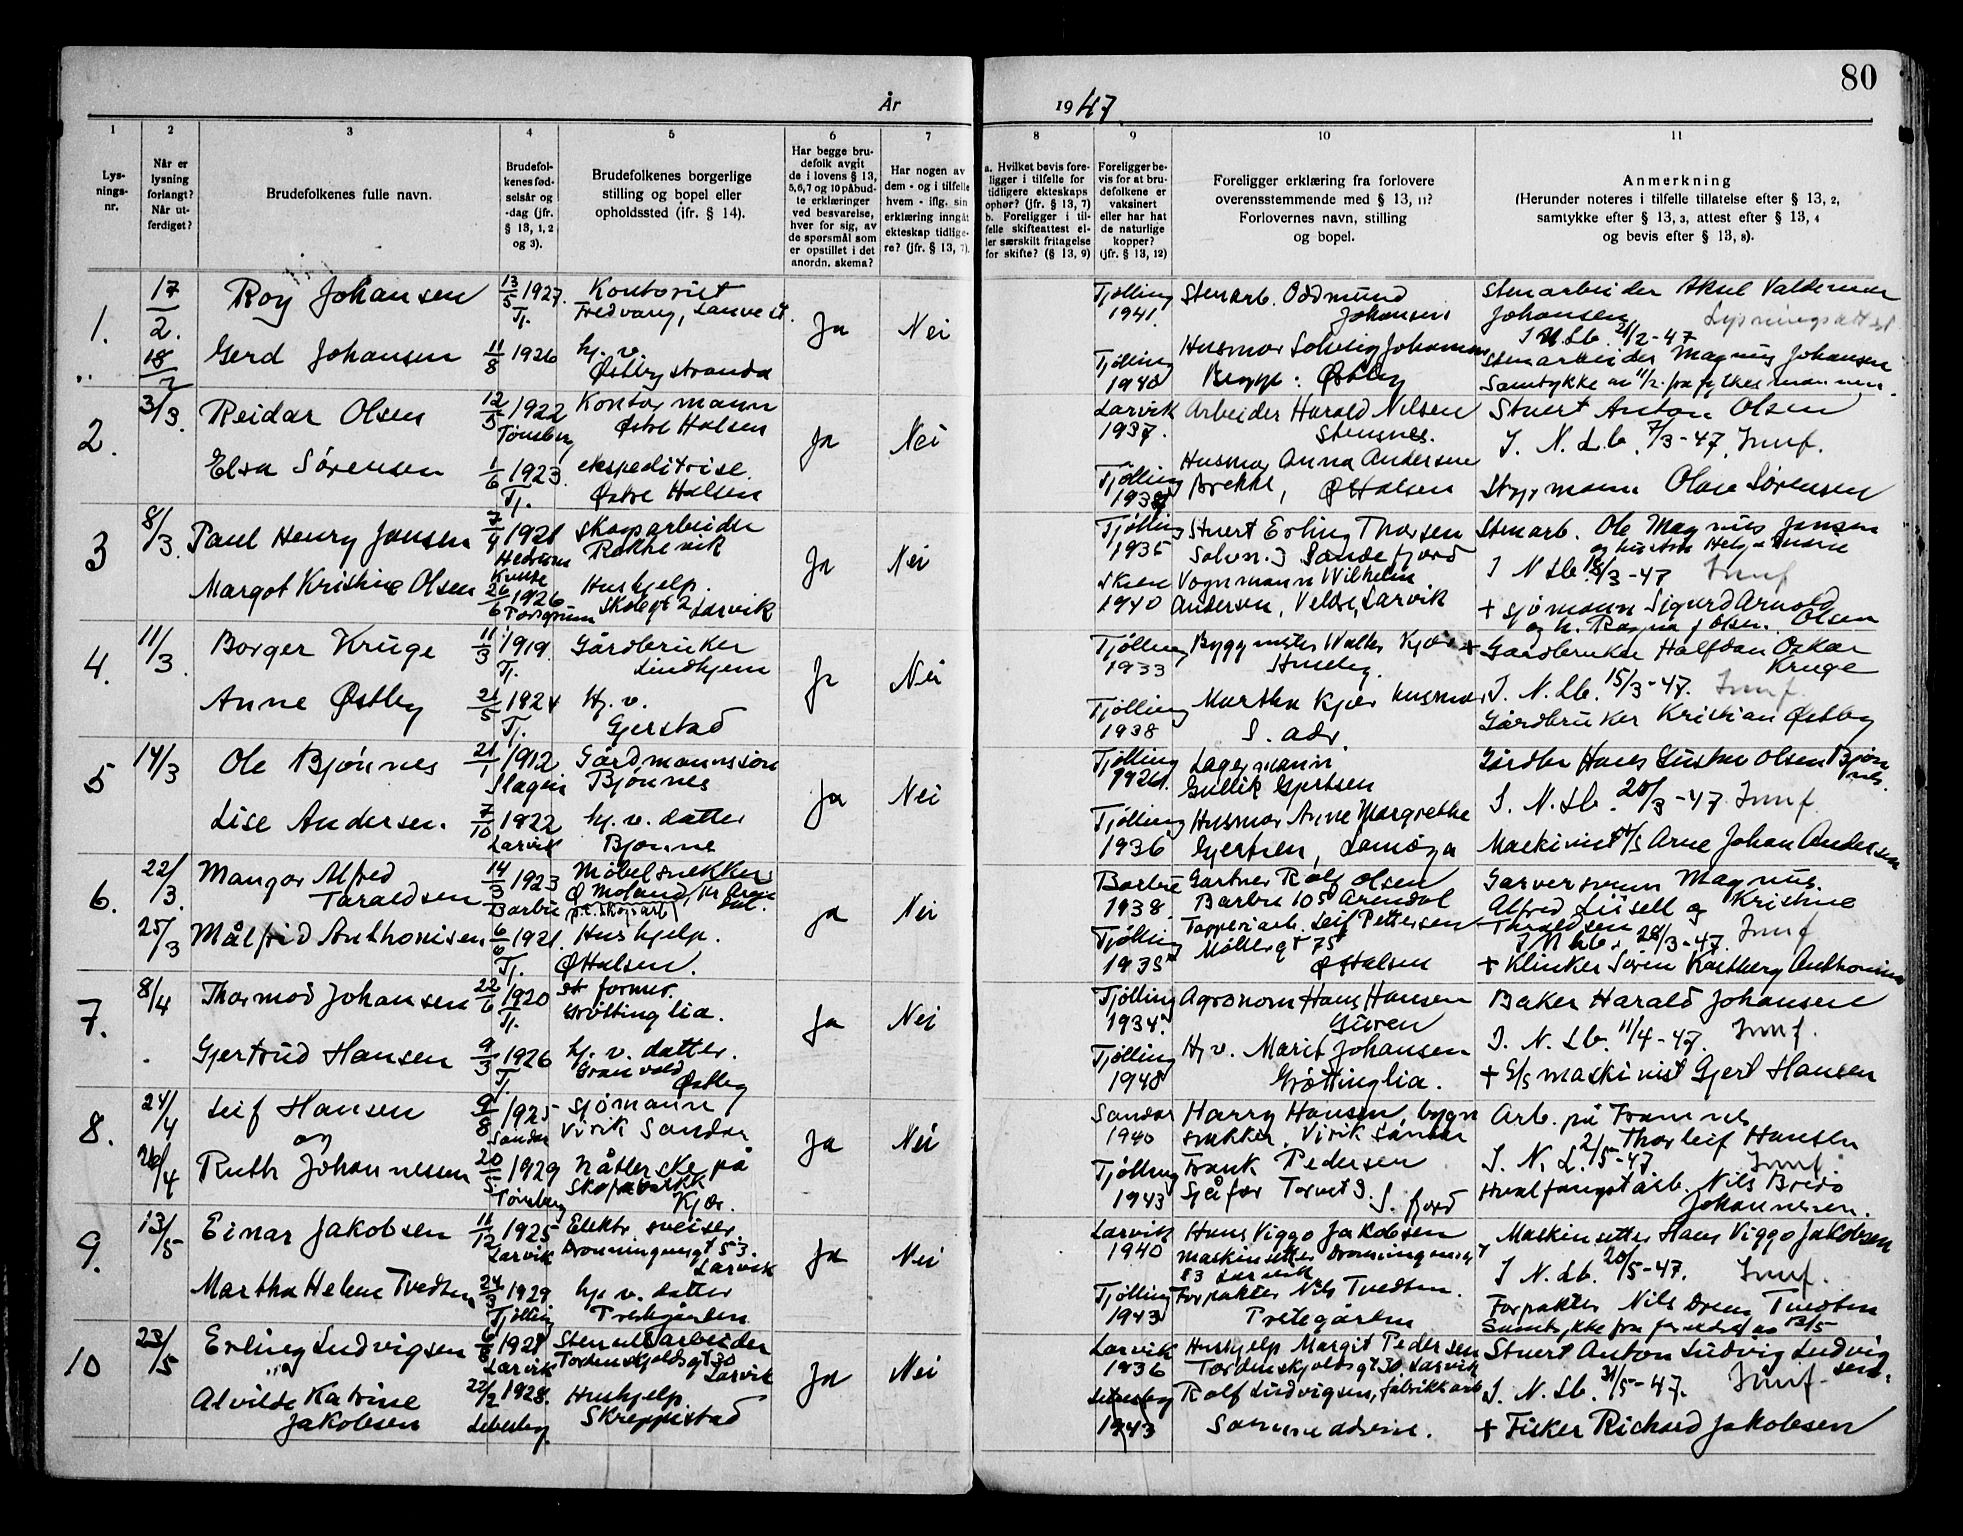 80
År
19 47
1
2
3
4
5
6
7
8
9
10
11
Lys-
nings-
nr.
Når er
lysning
forlangt?
Når ut-
ferdiget?
Brudefolkenes fulle navn.
Brudefol-
kenes fød-
selsår og
-dag (jfr.
§ 13, 1, 2
og 3).
Brudefolkenes borgerlige
stilling og bopel eller
opholdssted (jfr. § 14).
Har begge bru-
defolk avgit
de i lovens § 13,
5, 6, 7 og 10 påbud-
te erklæringer
ved besvarelse,
hver for sig, av
de spørsmål som
er opstillet i det
anordn. skema?
Har nogen av
dem - og i tilfelle
hvem - iflg. sin
erklæring inngått
ekteskap tidlige-
re? (jfr. § 13, 7).
a. Hvilket bevis fore-
ligger i tilfelle for
tidligere ekteskaps
ophør? (jfr. § 13, 7)
b. Foreligger i til-
felle skifteattest el-
ler særskilt fritagelse
for skifte? (§ 13, 9)
Foreligger be-
vis for at bru-
defolkene er
vaksinert
eller har hat
de naturlige
kopper?
(jfr. § 13, 12)
Foreligger erklæring fra forlovere
overensstemmende med § 13, 11?
Forlovernes navn, stilling
og bopel.
Anmerkning
(Herunder noteres i tilfelle tillatelse efter § 13, 2,
samtykke efter § 13, 3, attest efter § 13, 4
og bevis efter § 13, 8).
1.
17/2.
18/2
Roy Johansen
13/5 1927.
Tj.
Kontorist
Fredvang, Lauve st.
Gerd Johansen
11/8 1926
hj. v.
Østbystranda
Ja
Nei
Tjølling
1941.
Stenarb. Oddmund
Johansen
Tjølling
1940
Husmor Solveig Johansen
Brygge: Østby
Stenarbeider Aksel Valdemar
Johansen Lysningsattest
I N Lb. 21/2-47
Stenarbeider Magnus Johansen
Samtykke av 11/2 fra fylkesmannen.
2.
3/3.
Reidar Olsen
12/5 1922
Tønsberg
Kontormann
Østre Halsen
Elsa Sørensen
1/6 1923.
Tj.
ekspeditrise.
Østre Halsen
Ja
Nei
Larvik
1937.
Arbeider Harald Nilsen
Stensnes.
Tjølling
1938
Husmor Anna Andersen
Brekke, Ø Halsen
Stuert Anton Olsen
I. N. Lb. 7/3-47. Innf.
Styrmann Olav Sørensen
3
8/3.
Paul Henry Jansen
1921
Hedrum
skogsarbeider
Rakkevik
Margot Kristine Olsen
26/6 1926
Porsgrunn
Hushjelp.
Skolegt 2 Larvik
Ja
Nei
Tjølling
1935
Stuert Erling Thorsen
Solvn. 3 Sandefjord
Skien
1940
Vognmann Wilhelm
Andersen, Velde, Larvik
Stenarb. Ole Magnus Jansen
og hustru Helga Marie
I N Lb. 18/3-47 Innf
+ sjømann Sigurd Arnold
og h. Ragna J Olsen. Olsen
4.
11/3.
Borger Kruge
11/3 1919.
Tj.
Gårdbruker
Lindhjem
Anne Østby
21/5 1924
Tj.
Hj. v.
Gjerstad
Ja
Nei
Tjølling
1933
Byggmester Walter Kjær
Huseby.
Tjølling
1938
Martha Kjær husmor
S. adr.
+ Gårdbruker Halfdan Oskar
Kruge
I. N. Lb. 15/3-47. Innf.
Gårdbruker Kristian Østby
5
14/3
Ole Bjønnes
21/1 1912
Slagen
Gårdmannssøn
Bjønnes
Lise Andersen.
7/10 1922
Larvik
hj. v. datter
Bjønnes
Ja
Nei
Tjølling
1926.
Lagermann
Gullik Gjertsen
Tjølling
1936
Husmor Anne Margrethe
Gjertsen, Lamøya
Gårdbr Hans Gustav Olsen Bjøn
nes.
I. N. Lb. 20/3-47. Innf.
Maskinist Arne Johan Andersen
6.
22/3.
25/3
Mangor Alfred
Taraldsen
14/3 1923
Barbu
Møbelsnekker
Ø Moland, pr Aren
dal.
p.t. Skogsarb
Målfrid Anthonisen
6/6 1921.
Tj.
Hushjelp.
Ø Halsen.
Ja
Nei
Barbu
1938.
Gartner Rolf Olsen
Barbu 105 Arendal
Tjølling
1935
Tapperiarb. Leif Pettersen
Møllergt 75
Ø Halsen
Garversvenn Magnus
Alfred Lusell og Kristine
Taraldsen
I N Lb. 28/3-47. Innf
+ Klinker Søren Kastberg Anthonisen
7.
8/4
Thormod Johansen
22/6 1920
Tj.
former.
Grøtting lia.
Gjertrud Hansen
9/3 1926
Tj.
hj. v. datter.
Granvold
Østby
Ja
Nei
Tjølling
1934.
Agronom Hans Hansen
Guren
Tjølling
1940
Hj v. Marit Johansen
Grøttinglia.
Baker Harald Johansen
I. N. Lb. 11/4-47. Innf.
+ S/S maskinist Gjert Hansen
8.
24/4
26/4
Leif Hansen
og
9/8 1925
Sandar
Sjømann
Virik Sandar
Ruth Johannesen
20/5 1929
Tønsberg
Nåtlerske på
Skofabrikk
Kjær.
Ja
Nei
Sandar
1940
Harry Hansen, bygn
snekker, Virik Sandar
Tjølling
1943
Frank Pedersen
Sjåfør Torvet 3. S. fjord
Arb. på Framnes
Thorleif Hansen
I. N. L. 2/5-47 Innf.
Hvalfangstarb. Nils Bredo
Johannesen.
9.
13/5
Einar Jakobsen
11/12 1925
Larvik
Elektr. sveiser.
Dronningensgt 53.
Larvik
Martha Helene Tvedten
24/3 1929.
Tjølling
hj. v. datter
Prestegården
Ja
Nei
Larvik
1940
Hans Viggo Jakobsen
maskinsetter Dronningensgt
53 Larvik
Tjølling
1943
Forpakter Nils Tvedten.
Prestegården
Maskinsetter Hans Viggo Jakobsen
I N. Lb. 20/5-47. Innf.
Forpakter Nils Tvedten
Samtykke fra foreldre av 13/5
10
23/5
Erling Ludvigsen
og
6/8 1921
Larvik
Stenarbeider
Tordenskjoldsgt 30
Larvik
Alvilde Katrine
Jakobsen
22/2 1928.
Hushjelp
Skreppestad
Ja
Nei
Larvik
1936
Hushjelp Margit Pedersen
Tordenskjoldsgt 30 Larvik
1943
Rolf Ludvigsen, fabrikkarb
Samme adresse.
Stuert Anton Ludvig Ludvig
sen.
I. N. Lb. 31/5-47. Innf.
+ Fisker Richard Jakobsen